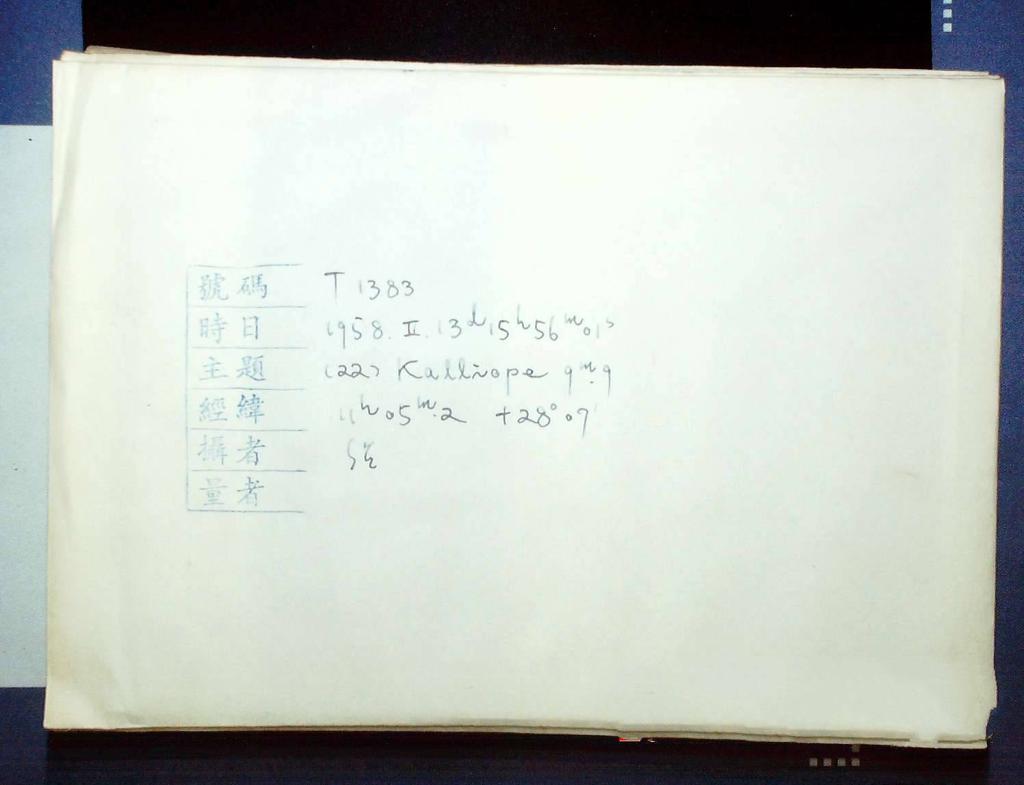 號碼 T 1383
時日 1958. II. 13ᵈ15ʰ56ᵐ01ˢ
主題 (22) Kalliope 9ᵐ.9
經緯 11ʰ05ᵐ.2 +28°07'
攝者
量者